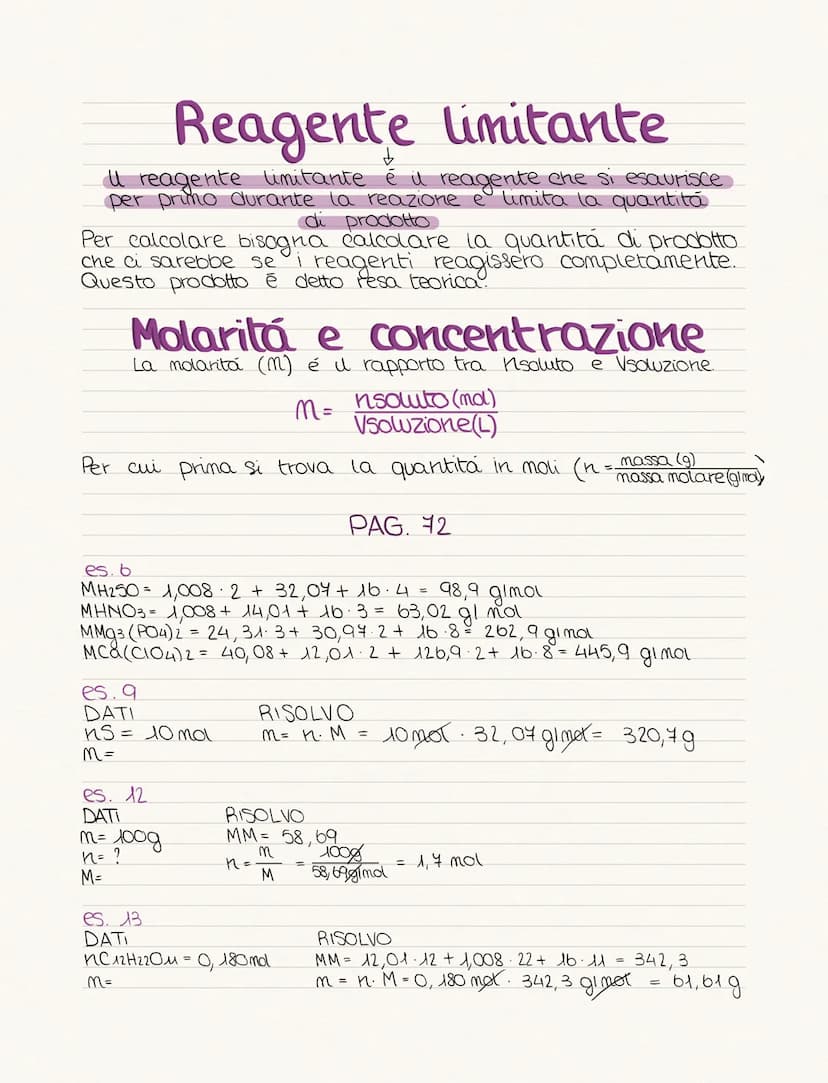 Reagente limitante
Il reagente limitante é il reagente che si esaurisce
per primo durante la reazione e limita la quantitá
di prodotto
Per calcolare bisogna calcolare la quantitá di prodotto
che ci sarebbe se i reagenti reagissero completamente.
Questo prodotto é detto resa teorica.
Molaritá e concentrazione
La molaritá (M) é il rapporto tra nsoluto e Vsoluzione.
M = nsoluto (mol) / Vsoluzione (L)
Per cui prima si trova la quantitá in moli (n = massa (g) / massa molare (g/mol))
PAG. 72
es. 6
MH2SO = 1,008 · 2 + 32,07 + 16 · 4 = 98,9 g/mol
MHNO3 = 1,008 + 14,01 + 16 · 3 = 63,02 g/mol
MMg3(PO4)2 = 24,31 · 3 + 30,97 · 2 + 16 · 8 = 262,9 g/mol
MCa(ClO4)2 = 40,08 + 12,01 · 2 + 126,9 · 2 + 16 · 8 = 445,9 g/mol
es. 9
DATI RISOLVO
nS = 10 mol m = n · M = 10 mol · 32,07 g/mol = 320,7 g
m =
es. 12
DATI RISOLVO
m = 100g MM = 58,69
n = ? n = m / M = 100g / 58,69 g/mol = 1,7 mol
M =
es. 13
DATI RISOLVO
nC12H22O11 = 0,180 mol MM = 12,01 · 12 + 1,008 · 22 + 16 · 11 = 342,3
m = m = n · M = 0,180 mol · 342,3 g/mol = 61,61 g